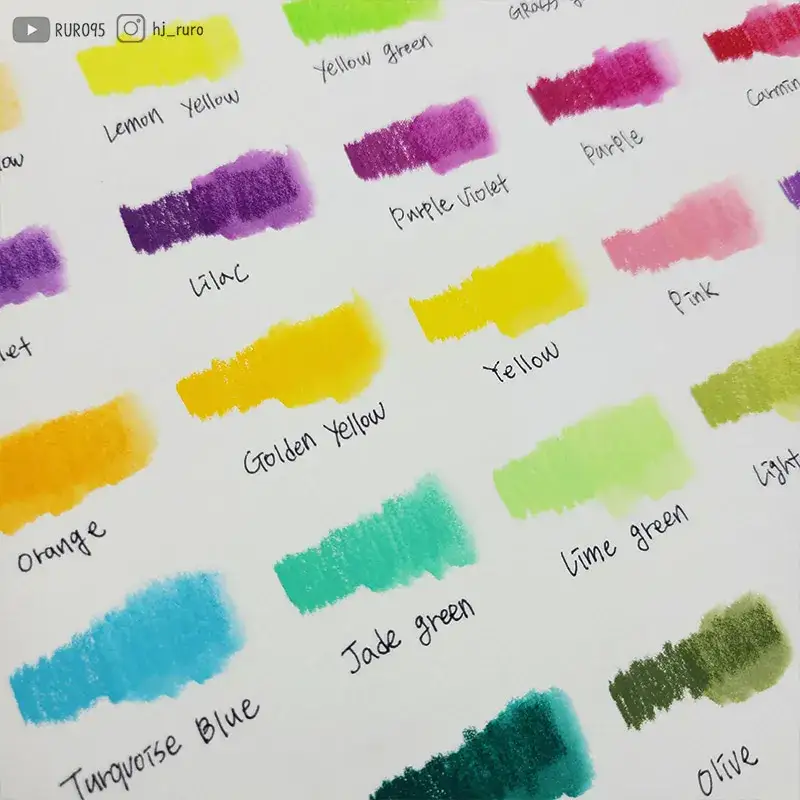 RURO95 hj_ruro
Yellow green
Lemon Yellow
Purple
Purple Violet
Lilac
Pink
Yellow
Golden Yellow
Orange
Lime green
Jade green
Turquoise Blue
Olive